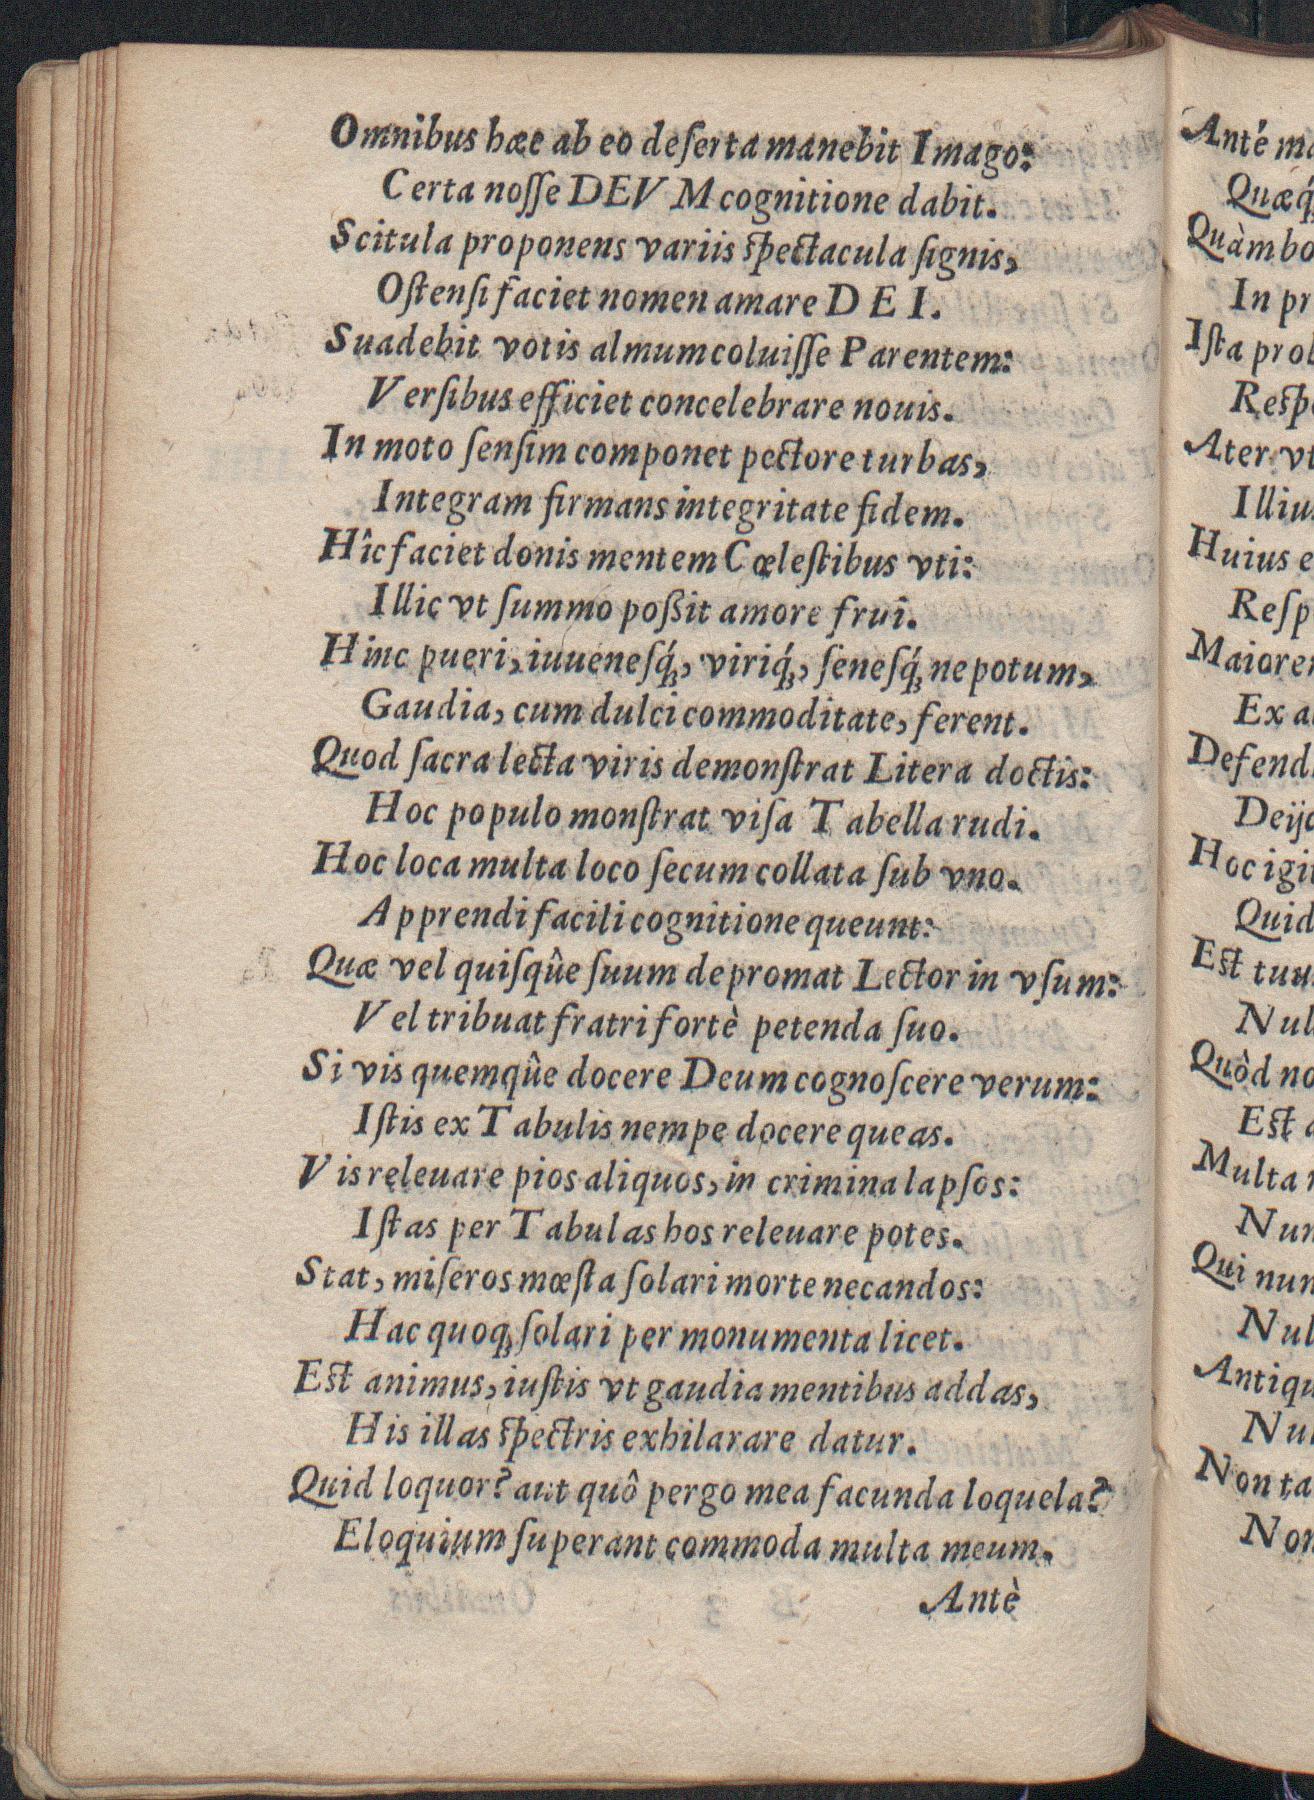 Omnibus hæc ab eo deſerta manebit Imago:
Certa noſſe DEVM cognitione dabit.
Scitula proponens variis ſpectacula ſignis,
Oſtenſi faciet nomen amare DEI.
Suadebit votis almum coluiſſe Parentem:
Verſibus efficiet concelebrare nouis.
In moto ſenſim componet pectore turbas,
Integram firmans integritate fidem.
Hîc faciet donis mentem Cœleſtibus vti:
Illic vt ſummo poßit amore frui.
Hinc pueri, iuueneſq́;, viriq́;, ſeneſq́; nepotum,
Gaudia, cum dulci commoditate, ferent.
Quod ſacra lecta viris demonſtrat Litera doctis:
Hoc populo monſtrat viſa Tabella rudi.
Hoc loca multa loco ſecum collata ſub vno.
Apprendi facili cognitione queunt:
Quæ vel quiſqûe ſuum depromat Lector in vſum:
Vel tribuat fratri fortè petenda ſuo.
Si vis quemqûe docere Deum cognoſcere verum:
Iſtis ex Tabulis nempe docere queas.
Vis releuare pios aliquos, in crimina lapſos:
Iſtas per Tabulas hos releuare potes.
Stat, miſeros mœſta ſolari morte necandos:
Hac quoq; ſolari per monumenta licet.
Eſt animus, iuſtis vt gaudia mentibus addas,
His illas ſpectris exhilarare datur.
Quid loquor? aut quô pergo mea facunda loquela?
Eloquium ſuperant commoda multa meum.
Antè
Anté
Quæq́;
Quàm
In
Iſta
Ater vt
Huius
Ex
Hoc
Quid
Eſt
Quòd
Eſt
Multa
Qui
Non